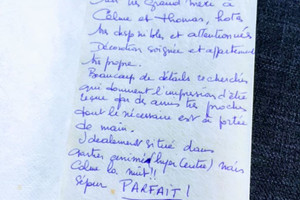 un grand merci à
Céline et Thomas, hôtes
très disponibles et attentionnés
Décoration soignée et appartement
très propre.
Beaucoup de détails recherchés
qui donnent l'impression d'être
reçue par de amis très proches
dont le nécessaire est à portée
de main.
Idéalement situé dans
quartier animé (hyper centre) mais
calme la nuit!!
Séjour PARFAIT!